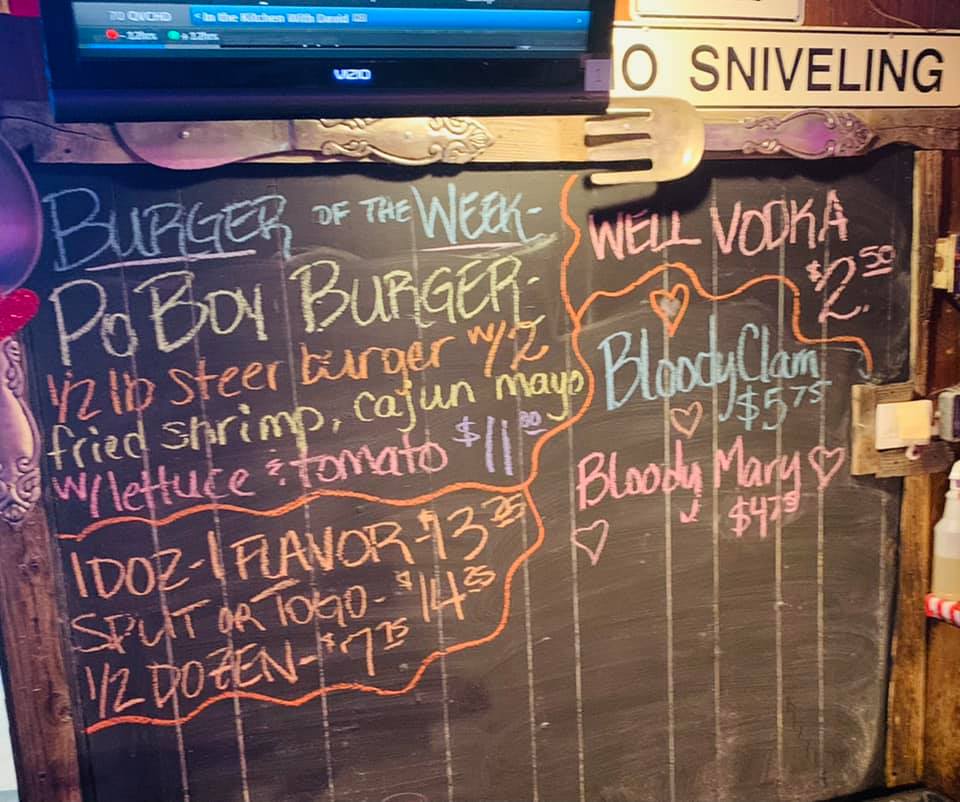 70 QVCHD
In the Kitchen With David HD
VIZIO
1
O SNIVELING
BURGER OF THE WEEK-
PO BOY BURGER-
1/2 lb Steer burger w/2
fried shrimp, cajun mayo
w/lettuce & tomato $11.
1DOZ-1 FLAVOR-$13.25
SPLIT OR TOGO-$14.25
1/2 DOZEN-$7.75
WELL VODKA
$2.50
Bloody Clam
$5.75
Bloody Mary
$4.75